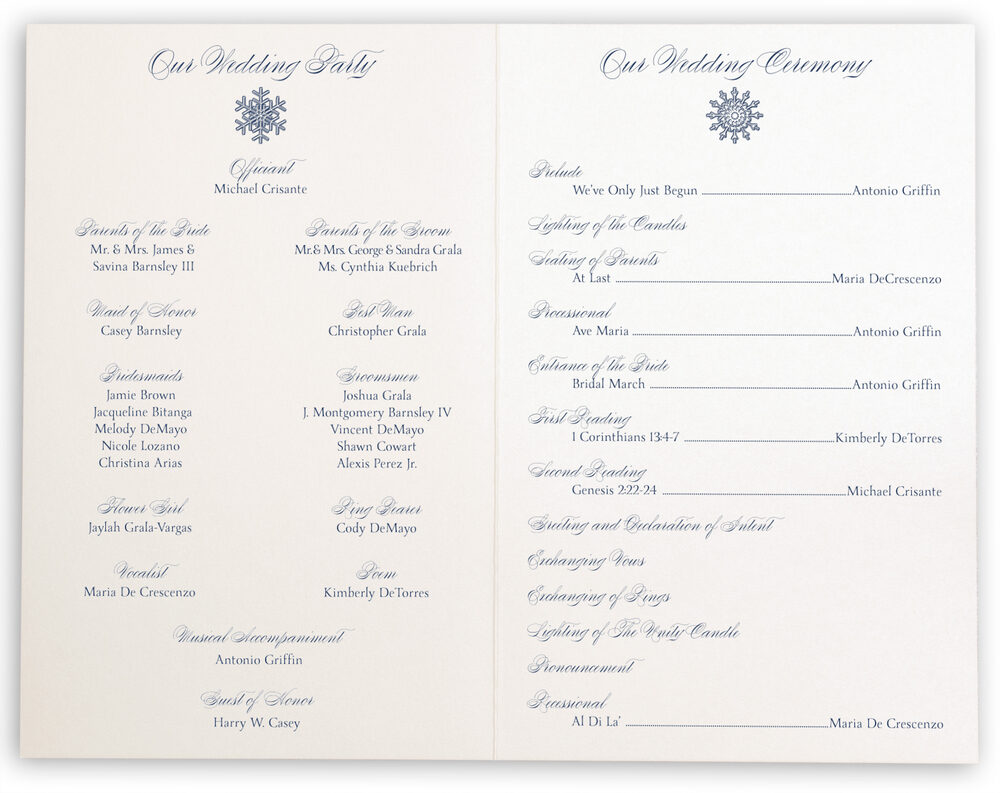 Our Wedding Party
Officiant
Michael Crisante
Parents of the Bride
Mr. & Mrs. James &
Savina Barnsley III
Parents of the Groom
Mr.& Mrs. George & Sandra Grala
Ms. Cynthia Kuebrich
Maid of Honor
Casey Barnsley
Best Man
Christopher Grala
Bridesmaids
Jamie Brown
Jacqueline Bitanga
Melody DeMayo
Nicole Lozano
Christina Arias
Groomsmen
Joshua Grala
J. Montgomery Barnsley IV
Vincent DeMayo
Shawn Cowart
Alexis Perez Jr.
Flower Girl
Jaylah Grala-Vargas
Ring Bearer
Cody DeMayo
Vocalist
Maria De Crescenzo
Poem
Kimberly DeTorres
Musical Accompaniment
Antonio Griffin
Guest of Honor
Harry W. Casey
Our Wedding Ceremony
Prelude
We've Only Just Begun Antonio Griffin
Lighting of the Candles
Seating of Parents
At Last Maria DeCrescenzo
Processional
Ave Maria Antonio Griffin
Entrance of the Bride
Bridal March Antonio Griffin
First Reading
1 Corinthians 13:4-7 Kimberly DeTorres
Second Reading
Genesis 2:22-24 Michael Crisante
Greeting and Declaration of Intent
Exchanging Vows
Exchanging of Rings
Lighting of The Unity Candle
Pronouncement
Recessional
Al Di La' Maria De Crescenzo